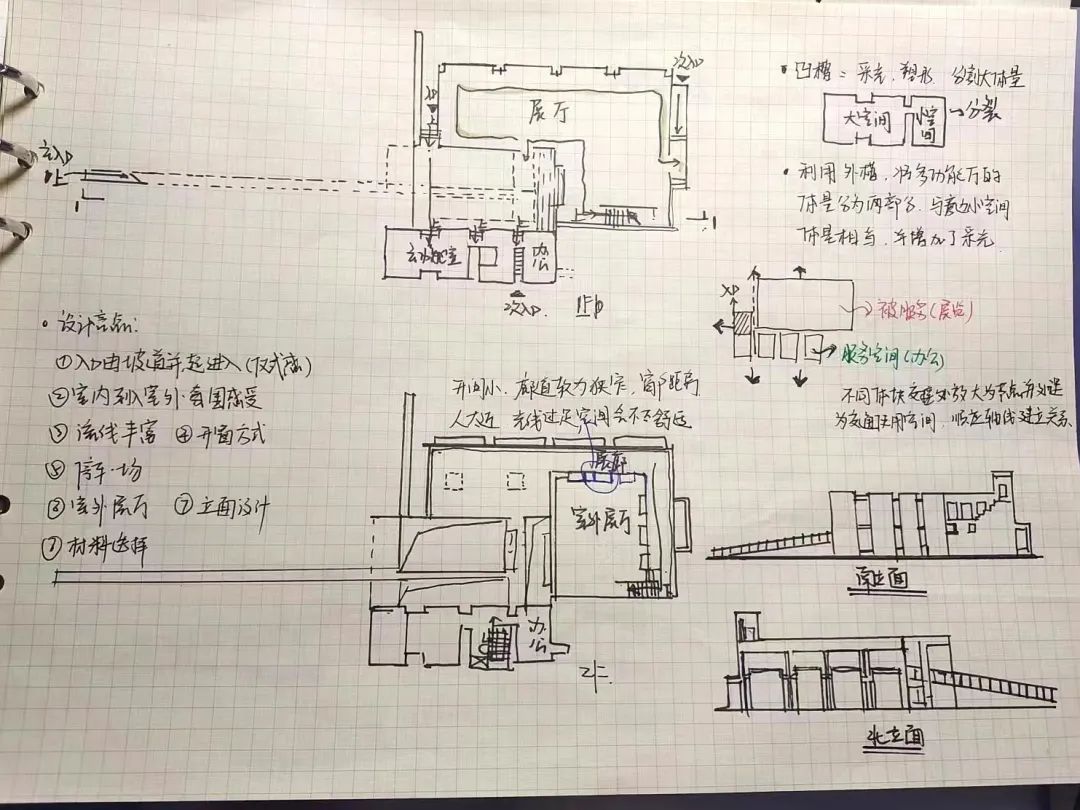 主入口
上
1
入口
次入口
展厅
1
办公
次入口
• 凹槽：采光、塑形、分割大体量
大空间
小空间
分裂
• 利用凹槽，将多功能厅的
体量分为两部分，与意边小空间
体量相当，并增加了采光
入口
被服务(展览)
服务空间(办公)
不同体块交接处放大为节点并处理
为交通使用空间，顺延轴线建立关系
• 设计亮点：
①入口由坡道升起进入(仪式感)
②室内到室外氛围感受
③ 流线丰富 ④ 开窗方式
⑤ 停车场
⑥ 室外展厅 ⑦ 立面设计
⑦ 材料选择
开间小、廊道较为狭窄，窗户距离
人太近，光线过足空间会不舒适
展廊
室外展厅
办公
南立面
北立面